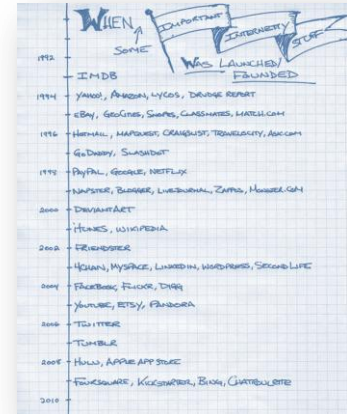 WHEN
SOME
IMPORTANT
INTERNETY
STUFF
WAS LAUNCHED/
FOUNDED
1992
IMDB
1994 YAHOO!, AMAZON, LYCOS, DRUDGE REPORT
EBAY, GEOCITIES, SNOPES, CLASSMATES, MATCH.COM
1996 HOTMAIL, MAPQUEST, CRAIGSLIST, TRAVELOCITY, ASK.COM
GODADDY, SLASHDOT
1998 PAYPAL, GOOGLE, NETFLIX
NAPSTER, BLOGGER, LIVEJOURNAL, ZAPPOS,
2000 DEVIANTART
ITUNES, WIKIPEDIA
2002 FRIENDSTER
4CHAN, MYSPACE, LINKEDIN, WORDPRESS, SECOND LIFE
2004 FACEBOOK, FLICKR, DIGG
YOUTUBE, ETSY, PANDORA
2006 TWITTER
TUMBLR
2008 HULU, APPLE APP STORE
FOURSQUARE, KICKSTARTER, BING, CHATROULETTE
2010